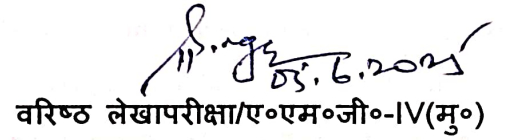 05.6.2025
वरिष्ठ लेखापरीक्षा/ए०एम०जी०-IV(मु०)